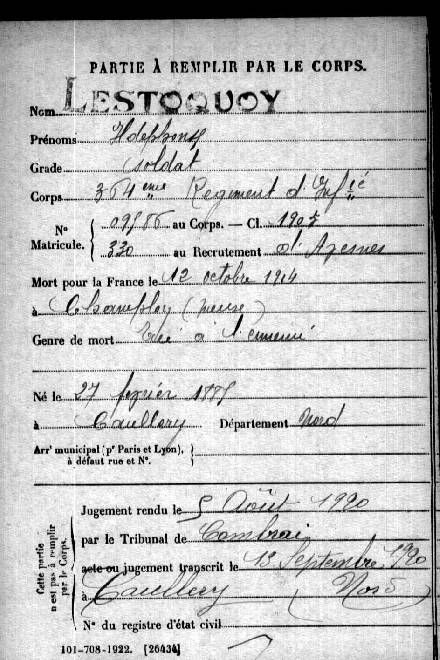 PARTIE À REMPLIR PAR LE CORPS.
Nom LESTOQUOY
Prénoms Ildephonse
Grade soldat
Corps 364 eme Regiment d'Inf ie
N° 09586 au Corps. — Cl. 1905
Matricule. 330 au Recrutement d'Avesnes
Mort pour la France le 12 octobre 1914
à (meuse)
Genre de mort Tué à l'ennemi
Né le 27 fevrier 1885
à Caullery Département Nord
Arr' municipal (p' Paris et Lyon),
à défaut rue et N°.
Cette partie
n'est pas à remplir
par le Corps.
Jugement rendu le 5 Août 1920
par le Tribunal de Cambrai
acte ou jugement transcrit le 13 Septembre 1920
à Caullery (Nord)
N° du registre d'état civil
101-708-1922. [26434]